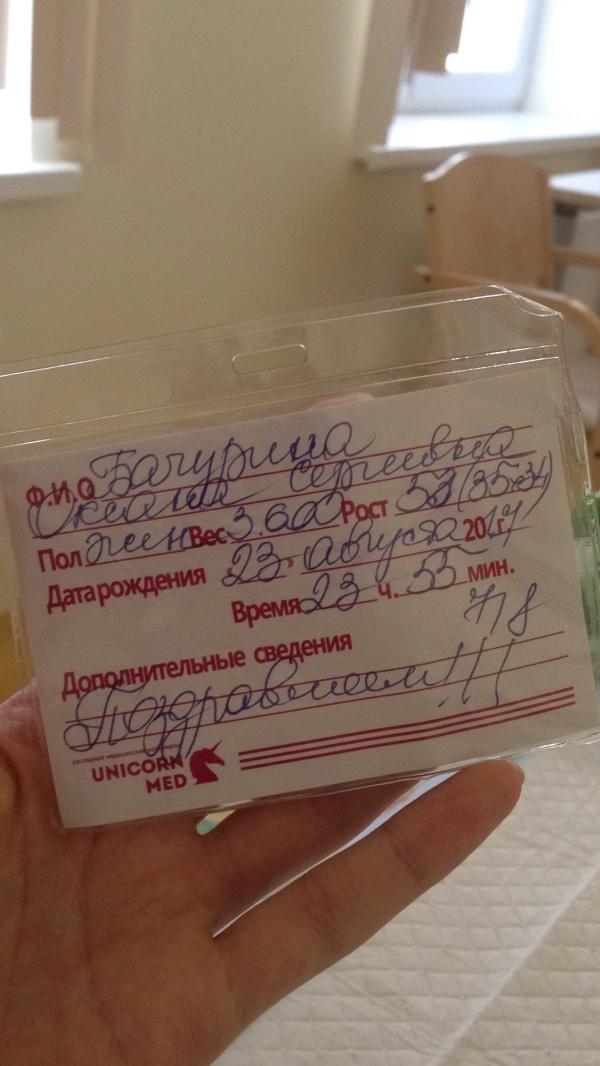 Ф.И.О Бачурина
Оксана Сергеевна
Пол жен Вес 3.600 Рост 53 (35-34)
Дата рождения 23. августа 2017 г.
Время 23 ч. 55 мин.
7/8
Дополнительные сведения
Поздравляем!!!
UNICORN
MED